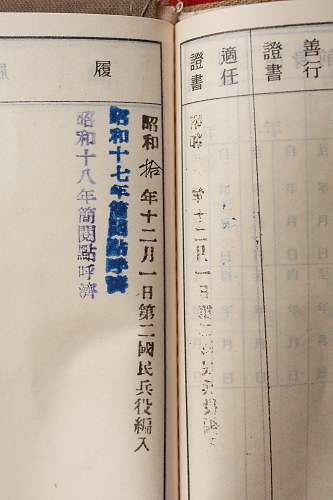 善行
證書
適任
證書
履
昭和拾年十二月一日第二國民兵役編入
昭和十七年簡閲點呼濟
昭和十八年簡閲點呼濟